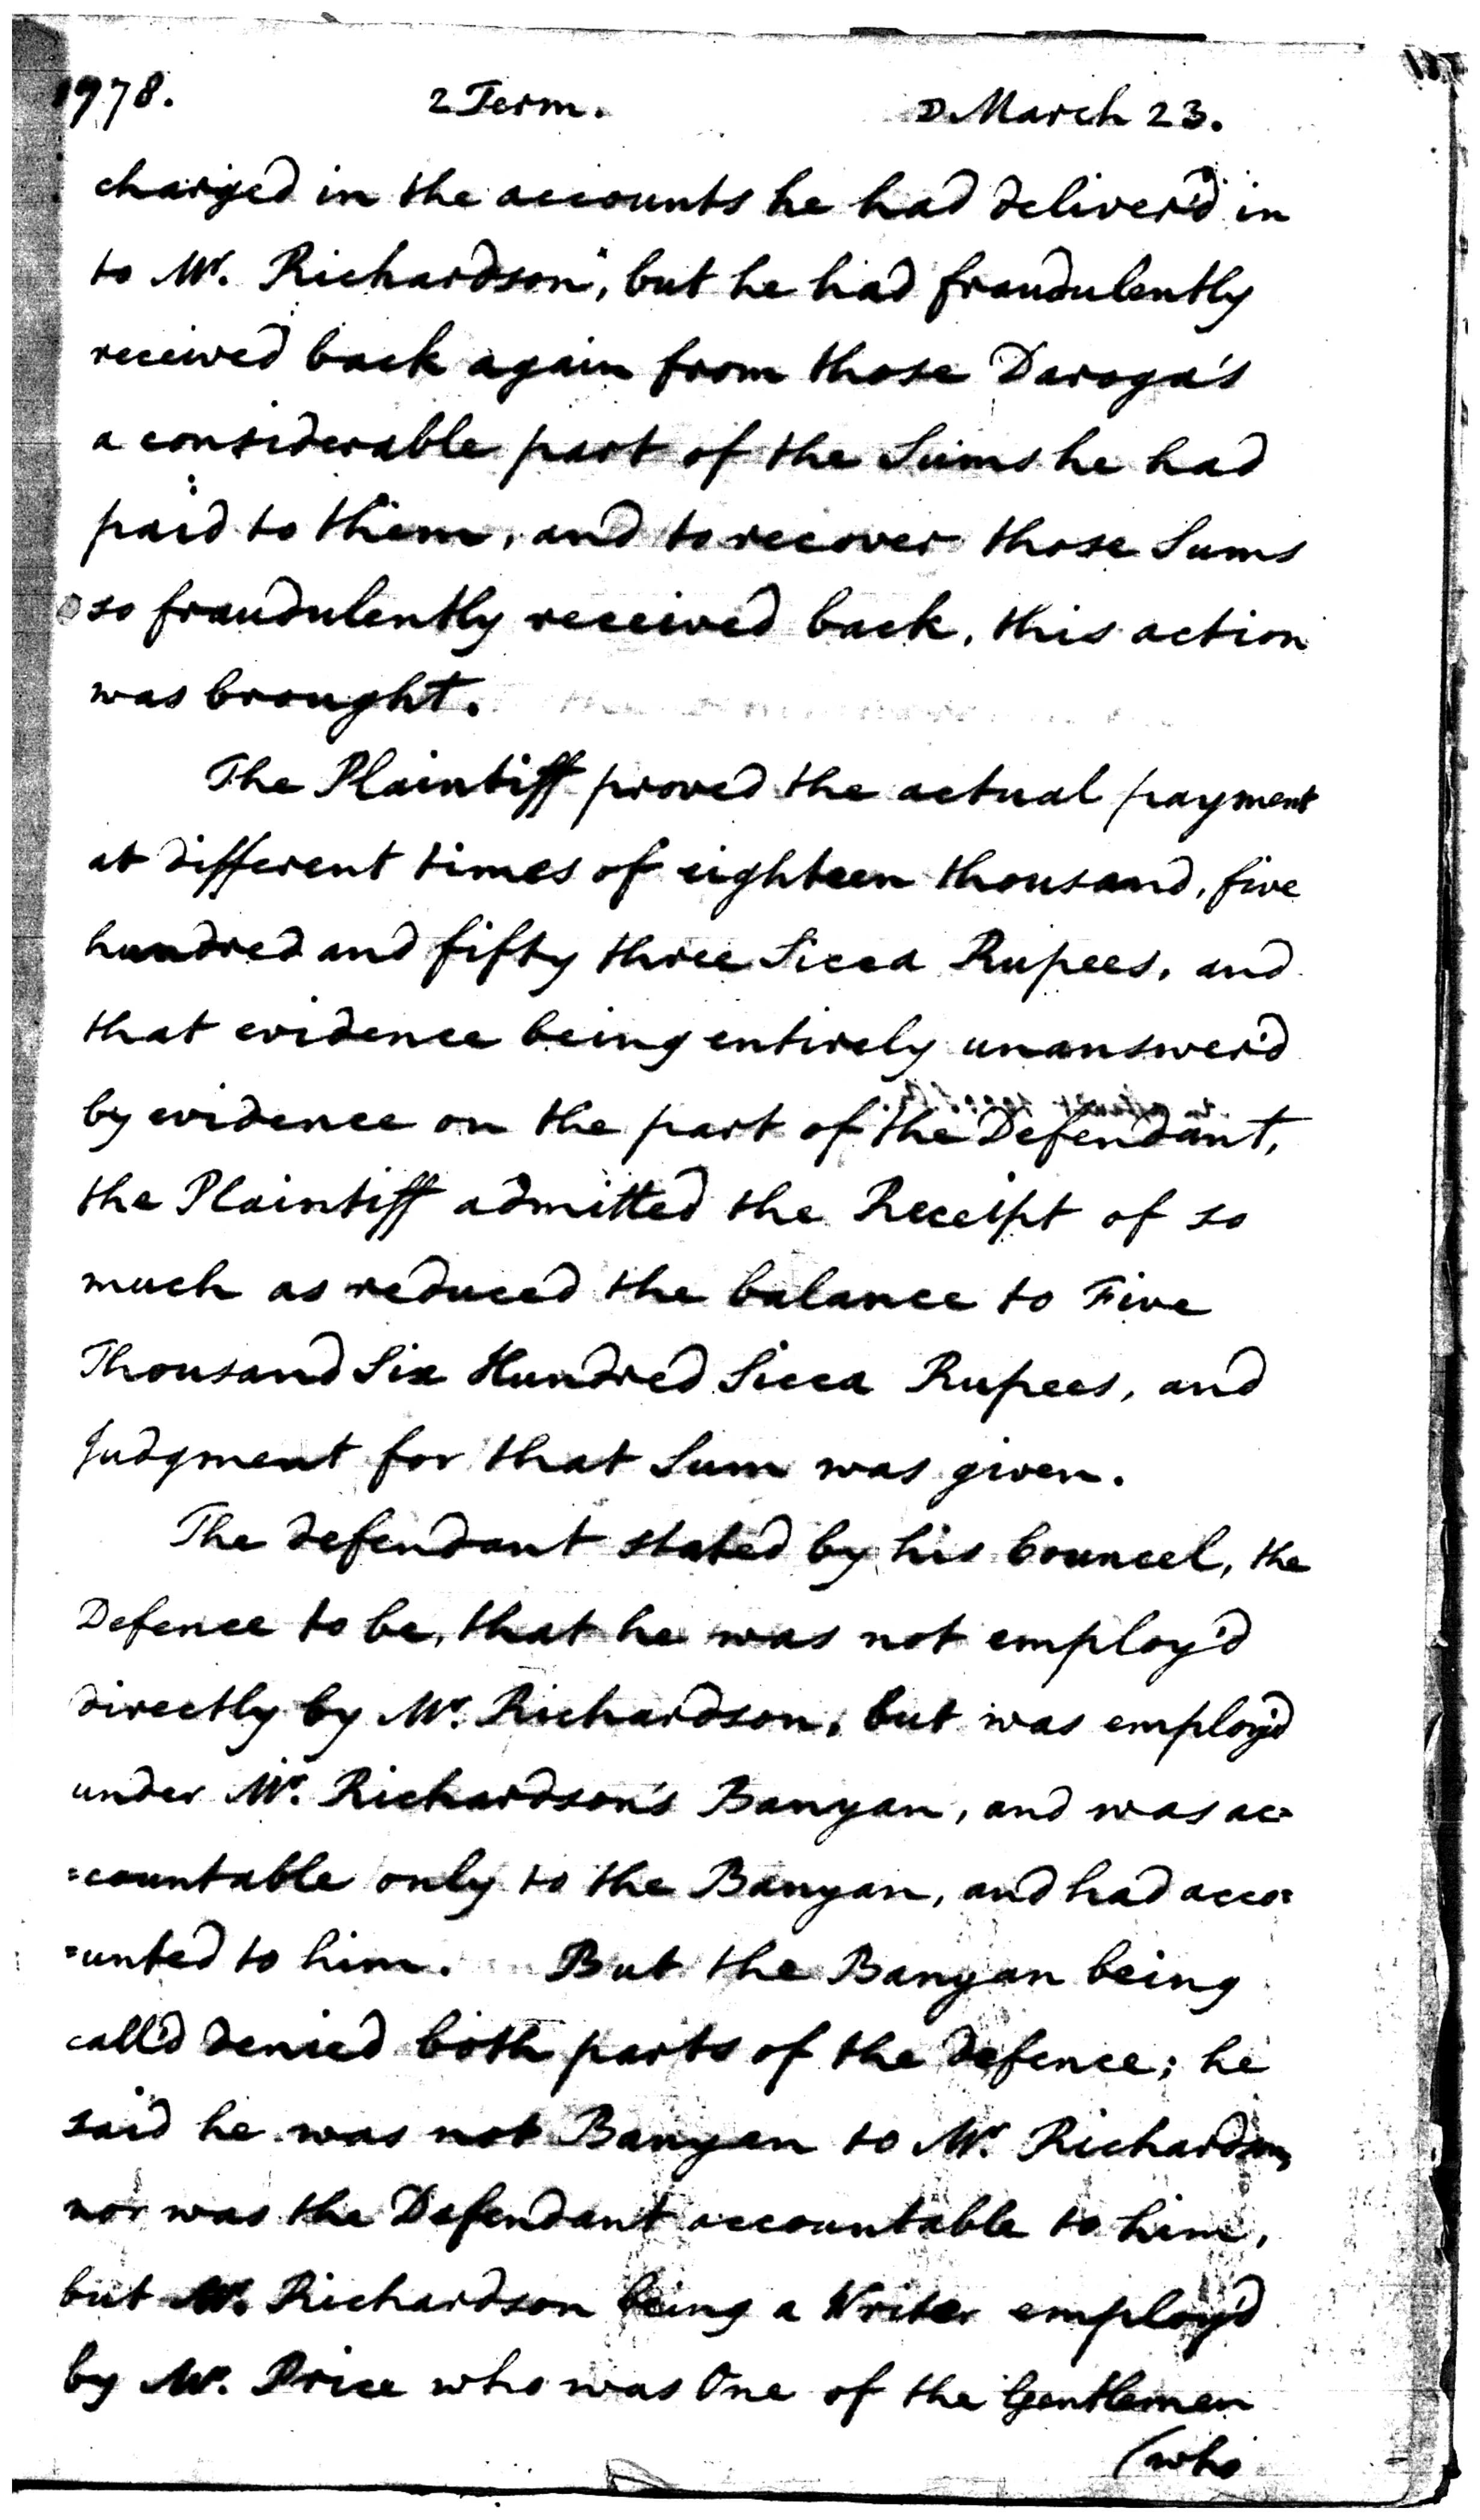 1978. 2 Term. D. March 23.
charged in the accounts he had deliver'd in
to Mr. Richardson, but he had fraudulently
received back again from those Daroga's
a considerable part of the Sums he had
paid to them, and to recover those Sums
so fraudulently received back, this action
was brought.
The Plaintiff proved the actual payment
at different times of eighteen thousand, five
hundred and fifty three Sicca Rupees, and
that evidence being entirely unanswer'd
by evidence on the part of the Defendant,
the Plaintiff admitted the Receipt of so
much as reduced the balance to Five
Thousand Six Hundred Sicca Rupees, and
Judgment for that Sum was given.
The defendant stated by his Councel, the
Defence to be, that he was not employ'd
directly by Mr. Richardson, but was employ'd
under Mr. Richardson's Banyan, and was ac=
=countable only to the Banyan, and had acco=
=unted to him. But the Banyan being
call'd denied both parts of the defence; he
said he was not Banyan to Mr. Richardson,
nor was the Defendant accountable to him,
but Mr. Richardson being a Writer employ'd
by Mr. Price who was One of the Gentlemen
(who